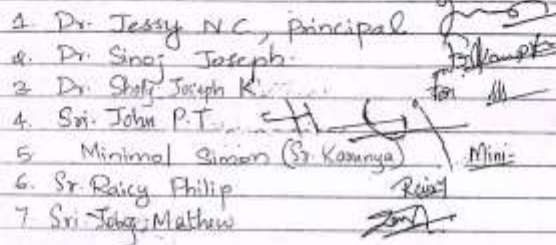 1. Dr. Jessy N.C, Principal
2. Dr. Sinoj Joseph.
3 Dr. Shoij Joseph K. For
4. Sri. John P.T
5 Minimol Simon (Sr. Karunya) Mini
6. Sr. Raicy Philip Raicy
7. Sri. Joby Mathew